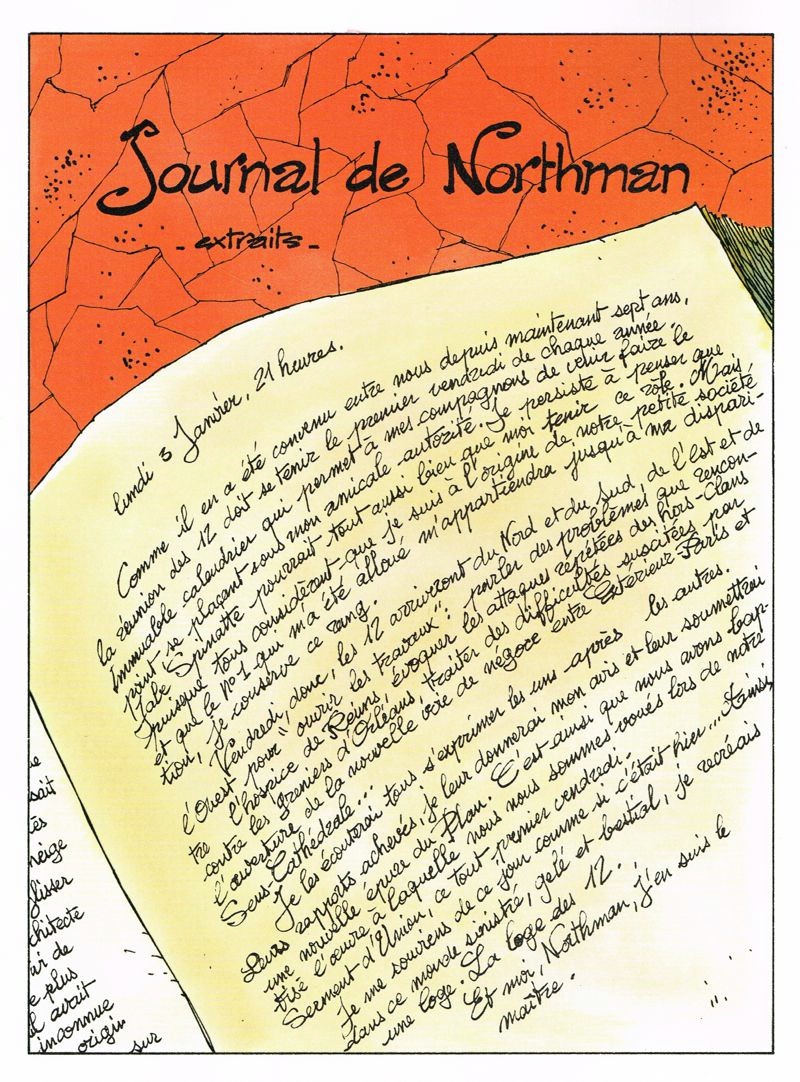 Journal de Northman
- extraits -
lundi 3 Janvier, 21 heures.
Comme il en a été convenu entre nous depuis maintenant sept ans,
la réunion des 12 doit se tenir le premier vendredi de chaque année.
Immuable calendrier qui permet à mes compagnons de venir faire le
point se plaçant sous mon amicale autorité. Je persiste à penser que
Jabe Spinatte pourrait tout aussi bien que moi tenir ce rôle. Mais
puisque tous considèrent que je suis à l'origine de notre petite société
et que le N°1 qui m'a été alloué m'appartiendra jusqu'à ma dispari-
tion, je conserve ce rang.
Vendredi, donc, les 12 arriveront du Nord et du Sud, de l'Est et de
l'Ouest pour "ouvrir les travaux": parler des problèmes que rencon-
tre l'hospice de Reims, évoquer les attaques répétées des hors-clans
contre les greniers d'Orléans, traiter des difficultés suscitées par
l'ouverture de la nouvelle voie de négoce entre Extérieur-Paris et
Sens Cathédrale...
Je les écouterai tous s'exprimer les uns après les autres.
Leurs rapports achevés, je leur donnerai mon avis et leur soumettrai
une nouvelle épure du Plan. C'est ainsi que nous avons bap-
tisé l'œuvre à laquelle nous nous sommes voués lors de notre
Serment d'Union, ce tout premier vendredi.
Je me souviens de ce jour comme si c'était hier... Ainsi,
dans ce monde sinistré, gelé et bestial, je recréais
une loge. La loge des 12.
Et moi, Northman, j'en suis le
maître.
sait
neige
glisser
chitecte
de
plus
avait
inconnue
origin
sur